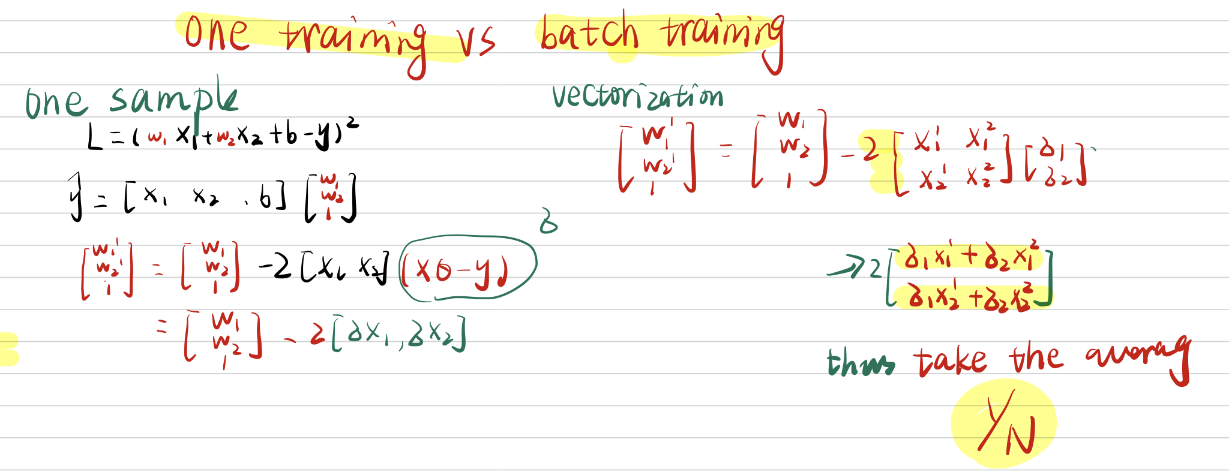 one training vs batch training
one sample
L = (w₁ x₁ + w₂ x₂ + b - y)²
ŷ = [x₁ x₂ . b] [w₁ w₂ 1]
[w₁' w₂' 1] = [w₁ w₂ 1] - 2 [x₁ x₂] (xθ - y) δ
= [w₁ w₂ 1] - 2 [δx₁, δx₂]
vectorization
[w₁' w₂' 1] = [w₁ w₂ 1] - 2 [x₁¹ x₁² x₂¹ x₂²] [δ₁ δ₂]
→ 2 [δ₁x₁¹ + δ₂x₁²
δ₁x₂¹ + δ₂x₂²]
thus take the averag
1/N